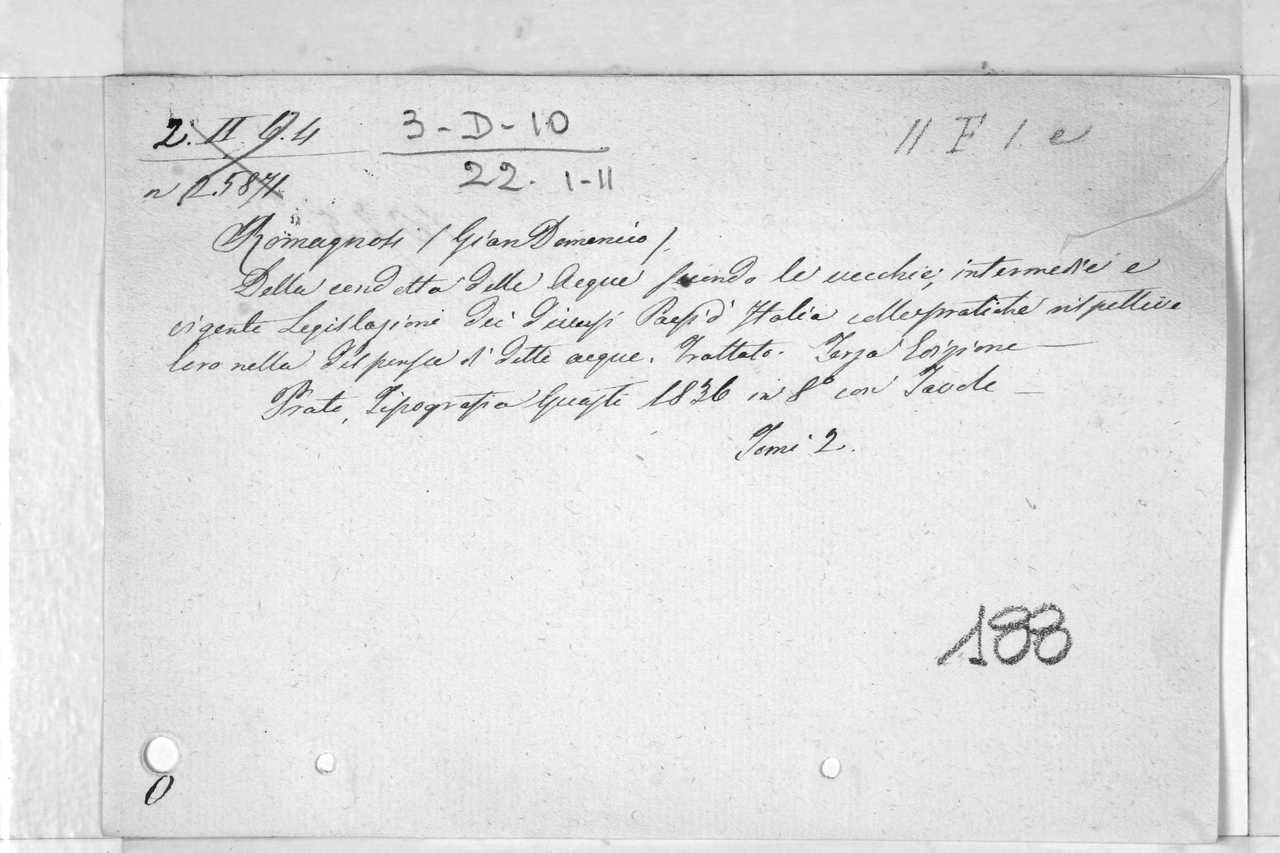 2. II. 9. 4
3-D-10
11 F 1. e
n 12.5871
22. I-II
Romagnosi / Gian Domenico /.
Della condotta delle Acque secondo le vecchie, intermedie e
vigente Legislazioni dei diversi Paesi d'Italia colle pratiche rispettive
loro nella dispensa di dette acque. Trattato. Terza Edizione —
Prato, Tipografia Guasti 1836 in 8° con Tavole —
Tomi 2.
188
0